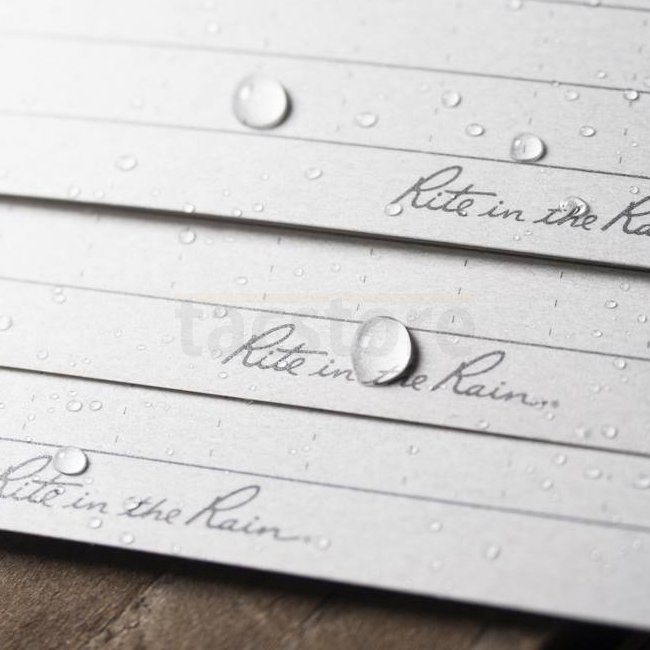 Rite in the Ra
tacstore
Rite in the Rain...
Rite in the Rain...